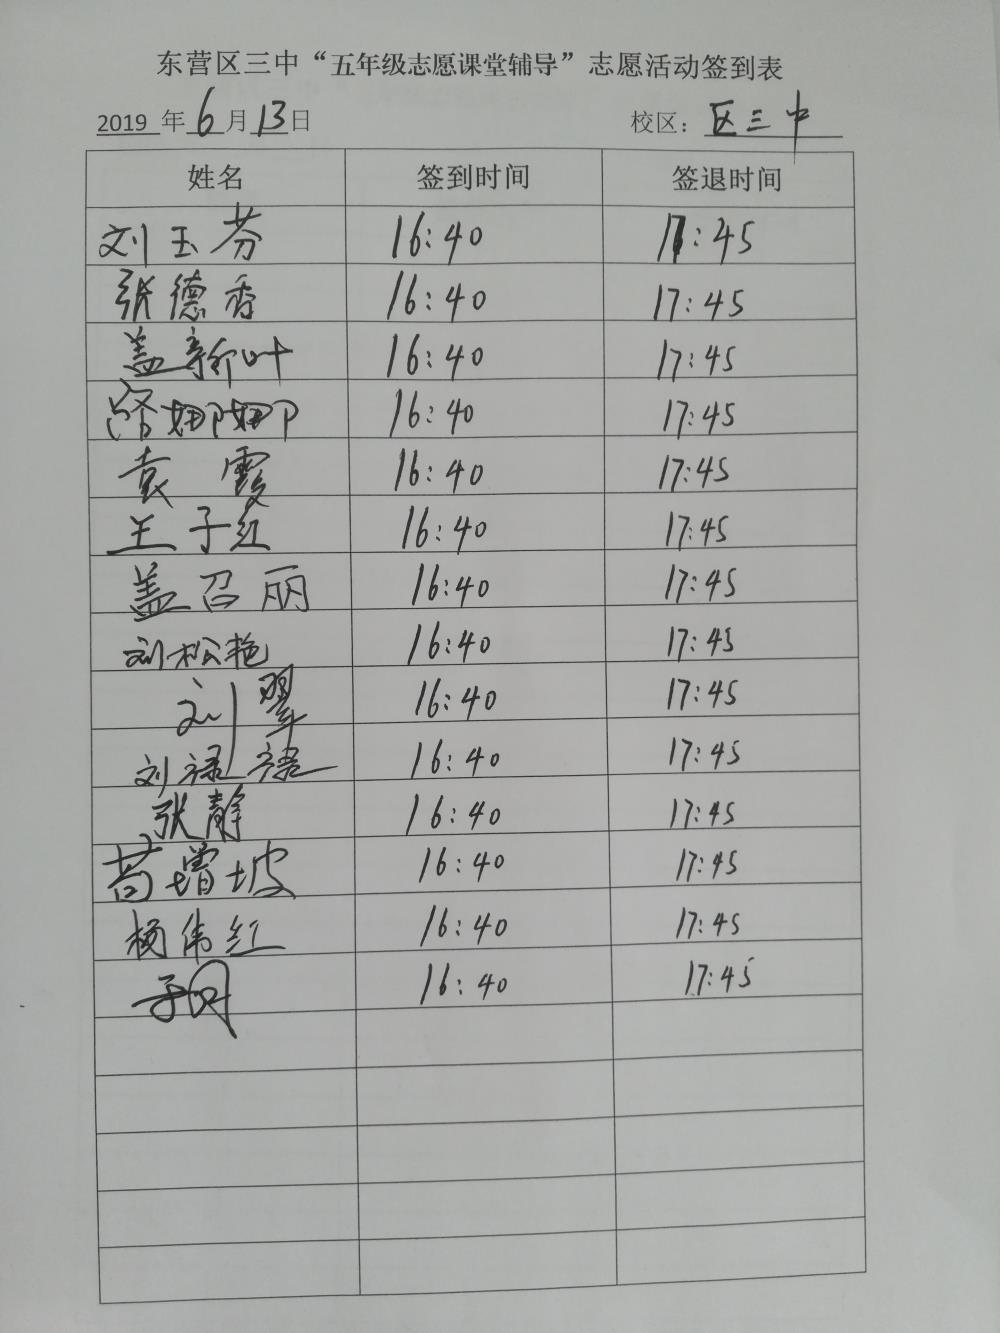 东营区三中“五年级志愿课堂辅导”志愿活动签到表
2019 年 6 月 13 日 校区：区三中
姓名 签到时间 签退时间
刘玉芬 16:40 17:45
张德香 16:40 17:45
盖新叶 16:40 17:45
娜娜 16:40 17:45
袁霞 16:40 17:45
王子红 16:40 17:45
盖召丽 16:40 17:45
刘松艳 16:40 17:45
刘翠 16:40 17:45
刘禄禧 16:40 17:45
张静 16:40 17:45
苟增坡 16:40 17:45
杨伟红 16:40 17:45
16:40 17:45